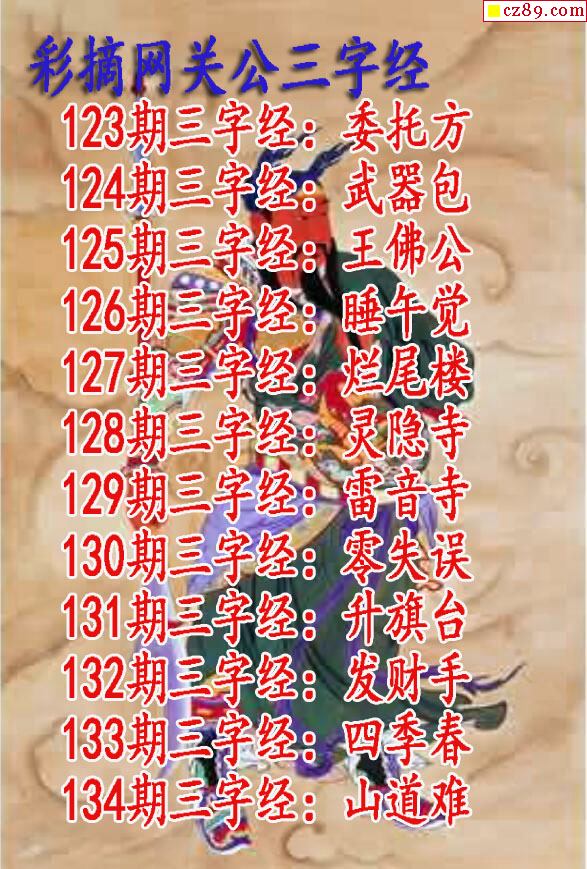 cz89.com
彩摘网关公三字经
123期三字经：委托方
124期三字经：武器包
125期三字经：王佛公
126期三字经：睡午觉
127期三字经：烂尾楼
128期三字经：灵隐寺
129期三字经：雷音寺
130期三字经：零失误
131期三字经：升旗台
132期三字经：发财手
133期三字经：四季春
134期三字经：山道难